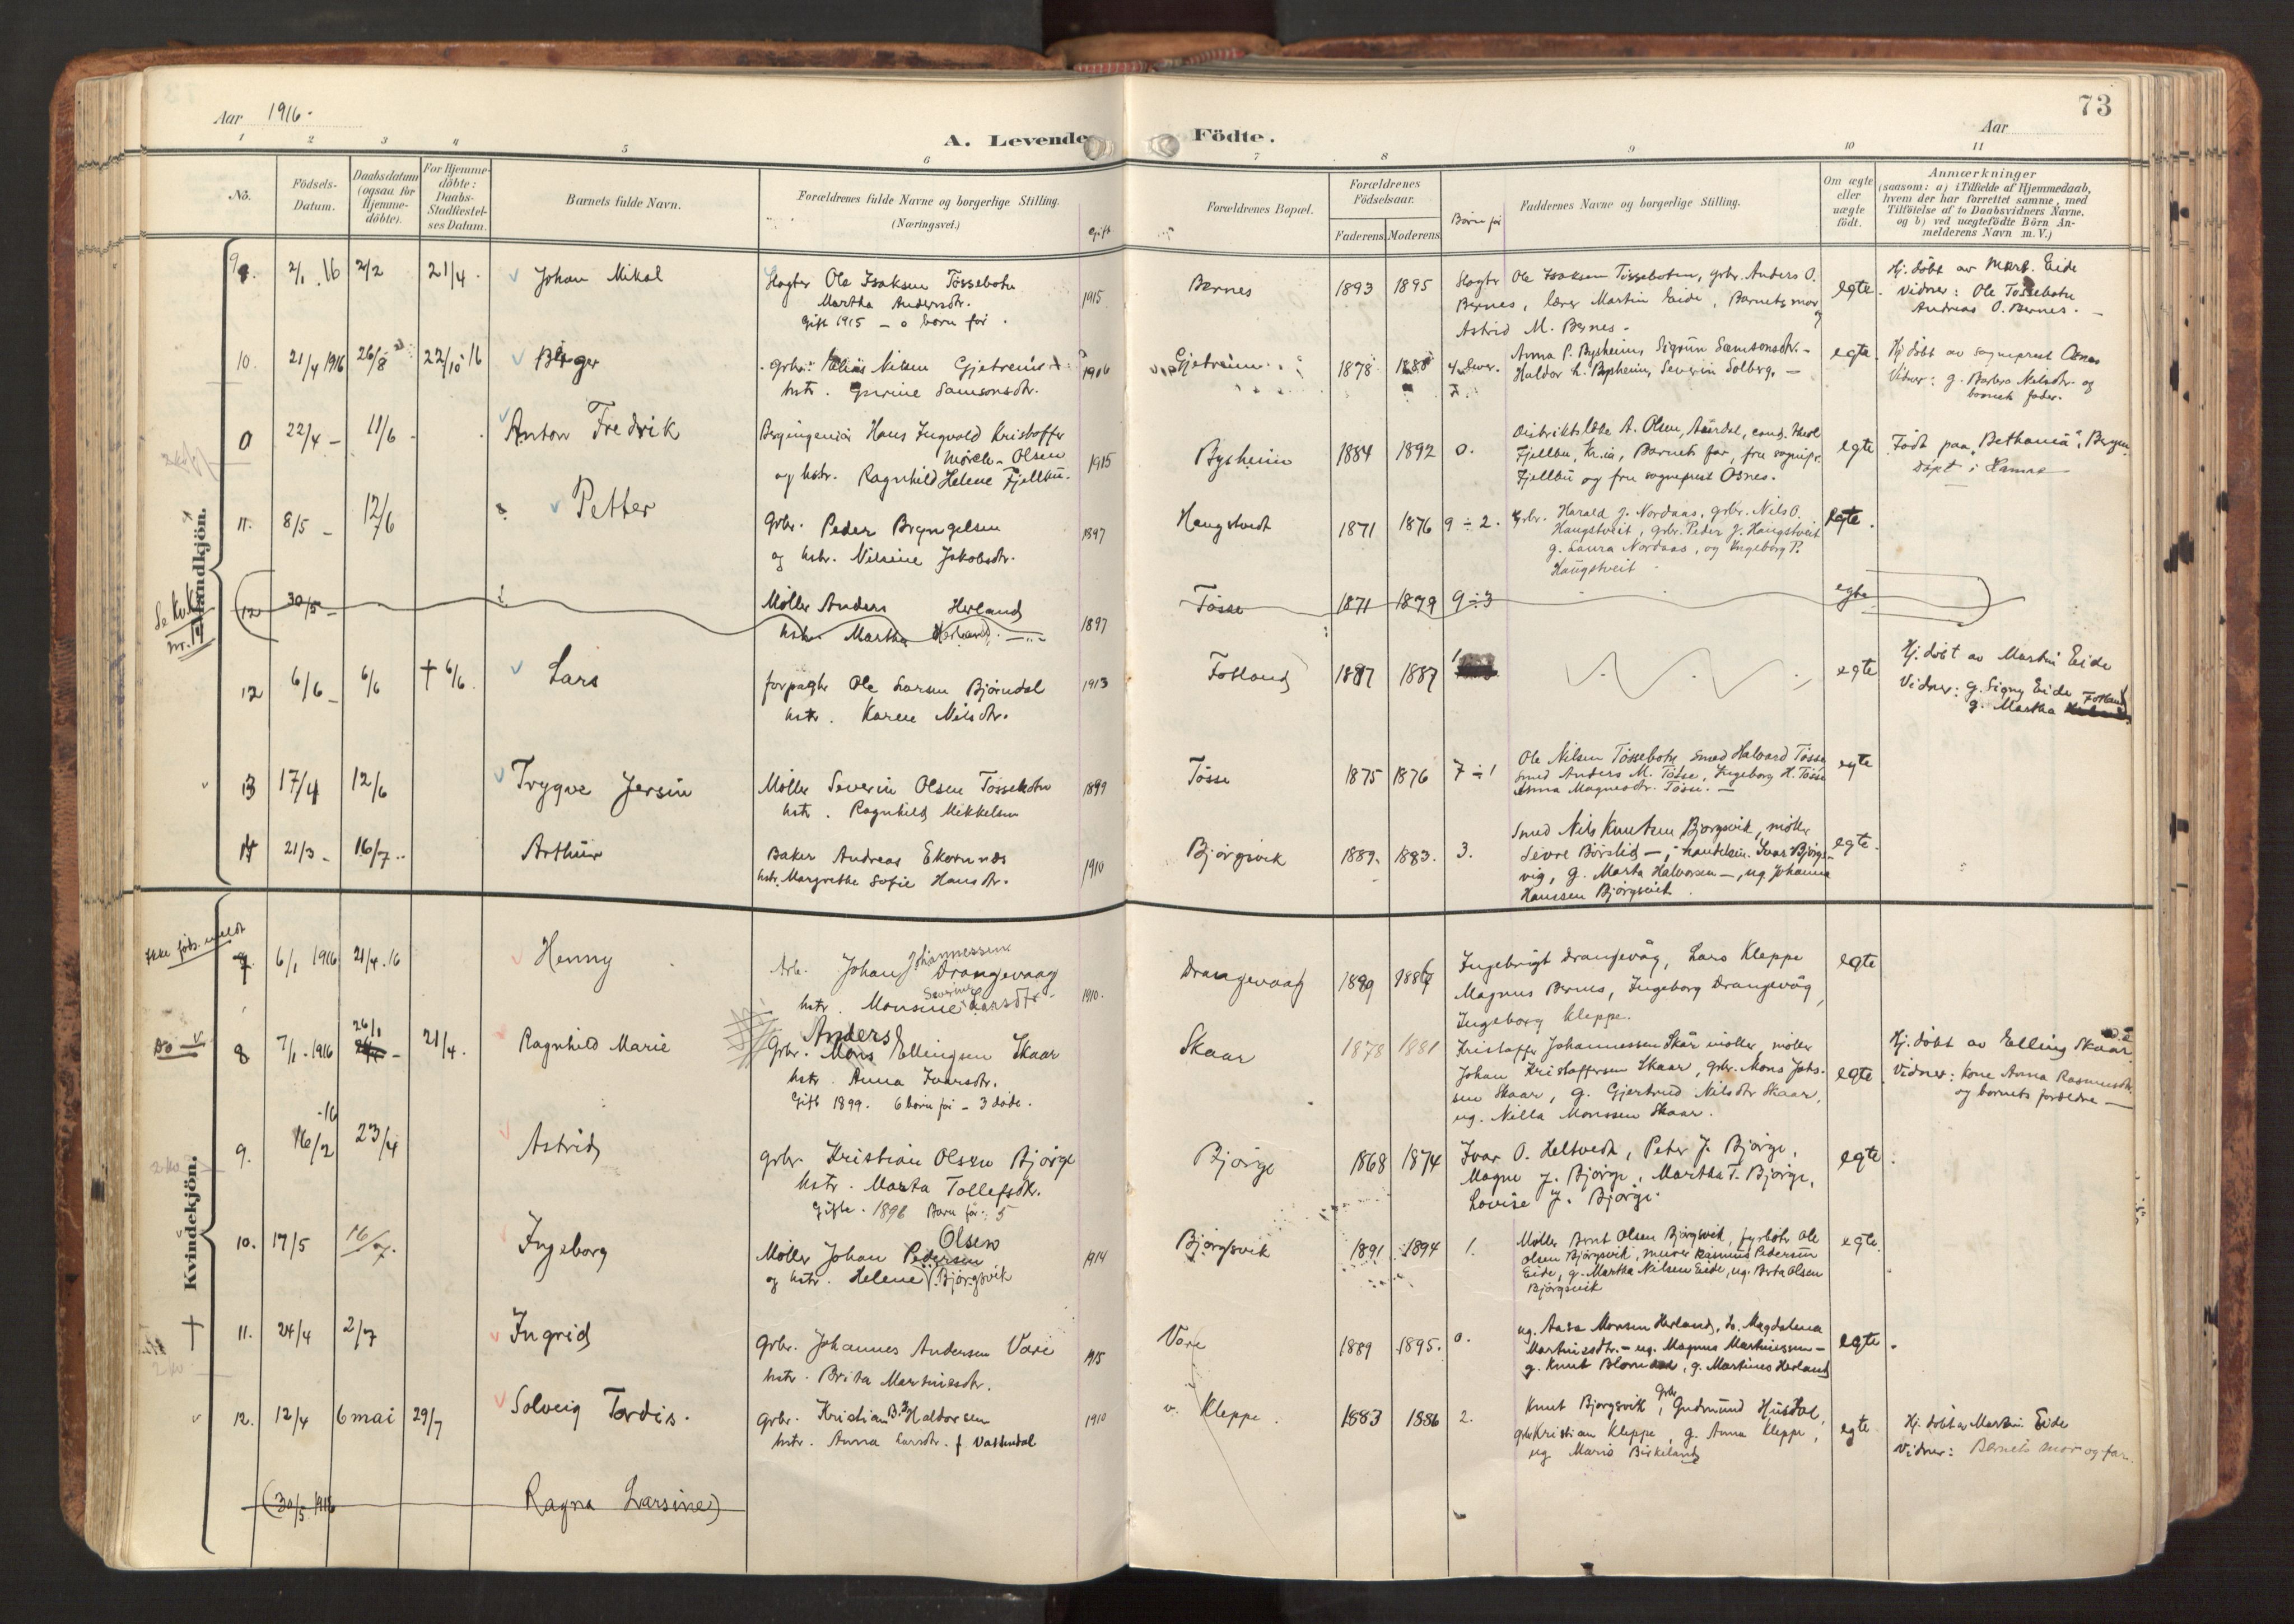 73
Aar 1916.
A. Levende Födte.
Aar
1 2 3 4 5 6 7 8 9 10 11
No.
Födsels-
Datum.
Daabsdatum
(ogsaa for
Hjemme-
döbte).
For Hjemme-
döbte:
Daabs-
Stadfæstel-
ses Datum.
Barnets fulde Navn.
Forældrenes fulde Navne og borgerlige Stilling.
(Næringsvei.)
Gift
Forældrenes Bopæl.
Forældrenes
Födselsaar.
Faderens Moderens
Børn før
Faddernes Navne og borgerlige Stilling.
Om ægte
eller
uægte
födt.
Anmærkninger
(saasom: a) i Tilfælde af Hjemmedaab,
hvem der har forrettet samme, med
Tilföielse af to Daabsvidners Navne,
og b) ved uægtefödte Börn An-
melderens Navn m. V.)
Mandkjön.
9. 2/1 16 2/2 21/4. Johan Mikal
Ole Isaksen Tössebotn
Martha Andersdtr.
Gift 1915 – 0 børn før.
1915
Bernes 1893 1895
Ole Isaksen Tössebotn, grbr. Anders O.
Bernes, lærer Martin Eide, Barnets mor og
Astrid M. Bernes.
egte.
Hj. döbt av Mart. Eide
Vidner: Ole Tössebotn
Andreas O. Bernes.
10. 21/4 1916 26/8 22/10 16 Birger
grbr. Elias Nilsen Gjetreim
hstr. Gurine Samsonsdtr.
Gjetreim 1878
Anna P. Bysheim, Sigrun Samsonsdtr. –
Haldor h. Bysheim, Severin Solberg. –
egte.
Hj. döbt av sogneprest Osnes
Vidner: g. Barbra Nilsdtr. og
barnets fader.
22/4 – 11/6 – Anton Fredrik
Bergingeniør Hans Ingvald Kristoffer
Mørch-Olsen
og hstr. Ragnhild Helene Fjellbu.
1915
Bysheim 1884 1892 0.
Distriktslæge A. Olsen, Aardal,
Fjellbu, Kr.ia, Barnets far, fru sognepr.
Fjellbu og fru sogneprest Osnes.
egte
Født paa "Bethania", Bergen.
Døpt i Hamre
11. 8/5 – 12/6 Petter
Grbr. Peder Bryngelsen
og hstr. Nilsine Jakobsdtr.
1897
Haugstvedt 1871 1876 9 ÷ 2.
Grbr. Harald J. Nordaas, grbr. Nils O.
Haugstveit, grbr. Peder J. Haugstveit
g. Laura Nordaas, og Ingeborg P.
Haugstveit
Egte.
12 30/5 –
Møller Anders Herland
hstr. Martha Herland.
1897
Tösse 1871 1879 9÷3 egte
12 6/6 – 6/6 † 6/6. Lars
forpagter Ole Larsen Bjørndal
hstr. Karen Nilsdtr.
1913
Fotland 1887 1887
egte
Hj. döbt av Martin Eide
Vidner: g. Signy Eide
g. Martha Fotland
13 17/4 12/6 Trygve Jersin
Møller Severin Olsen Tössebotn
hstr. Ragnhild Mikkelsen
1899
Tösse 1875 1876 7 ÷ 1
Ole Nilsen Tössebotn Smed Halvard Tösse
Smed Anders M. Tösse, Ingeborg H. Tösse
Anna Magnesdtr. Tösse. –
egte
14 21/3 – 16/7. Arthur
Baker Andreas Ekornnæs
hstr. Margrethe Sofie Hansdtr.
1910
Bjørgsvik 1889. 1883. 3.
Smed Nils Knutsen Bjørgsvik, møller
Sivre Børslid –, handelsm. Ivar Bjørgs-
vig, g. Marta Halvorsen –, ug. Johanna
Hanssen Bjørgsvik
egte.
Kvindekjön.
Ikke føds. meldt
7. 6/1 1916 21/4. 16 Henny
Arb. Johan Johannessen Drangevaag
hstr. Monsine Severine Larsdtr.
1910.
Drangevaag 1889
Ingebrigt Drangevåg, Lars Kleppe
Magnus Bernes, Ingeborg Drangevåg,
Ingeborg Kleppe.
egte
8 7/1 – 1916 26/1 21/4. Ragnhild Marie
Anders
Grbr. Mons Ellingsen Skaar
hstr. Anna Ivarsdtr.
Gift 1899. 6 børn før – 3 døde.
Skaar 1878 1881
Kristoffer Johannessen Skår møller, møller
Johan Kristoffersen Skaar, grbr. Mons Johs-
sen Skaar, g. Gjertrud Nilsdtr. Skaar,
ug. Nilla Monssen Skaar.
egte
Hj. döbt av Elling Skaar
Vidner: kone Anna Rasmusdtr.
og barnets forældre –
9. 16/2 -16 23/4 Astrid
grbr. Kristian Olsen Bjørge
hstr. Marta Tollefsdtr.
Gifte. 1896 Barn før: 5
Bjørge 1868 1874
Ivar O. Heltvedt, Peter J. Bjørge,
Magne J. Bjørge, Martha T. Bjørge,
Lovise J. Bjørge.
egte
10. 17/5 16/7. Ingeborg
Olsen
Møller Johan Pedersen
og hstr. Helene Bjørgsvik
1914
Bjørgsvik 1891 1894 1.
Møller Arnt Olsen Bjørgsvik, fyrbøter Ole
Olsen Bjørgsvik, murer Rasmus Pedersen
Eide, g. Martha Nilsen Eide, ug. Berta Olsen
Bjørgsvik
egte.
† 11. 24/4 2/7 Ingrid
Grbr. Johannes Andersen Vare
hstr. Brita Martinesdtr.
1915
Vare 1889 1895. 0.
ug. Aasa Monsen Herland, do. Magdalena
Martinesdtr. – ug. Magnus Martinussen –
g. Knut, g. Martines Herland
egte.
12. 12/4 6 mai 29/7 Solveig Tordis.
Grbr. Kristian B. Haldorsen
hstr. Anna Larsdtr. f. Vassendal
1910
Kleppe. 1883 1886 2.
Knut Bjørgsvik, Grbr. Gudmund Husdal,
grbr Kristian Kleppe, g. Anna Kleppe,
ug Marie Birkeland
egte
Hj. döbt av Martin Eide
Vidner: Barnets mor og far.
(30/5 1916 Ragna Larsine)